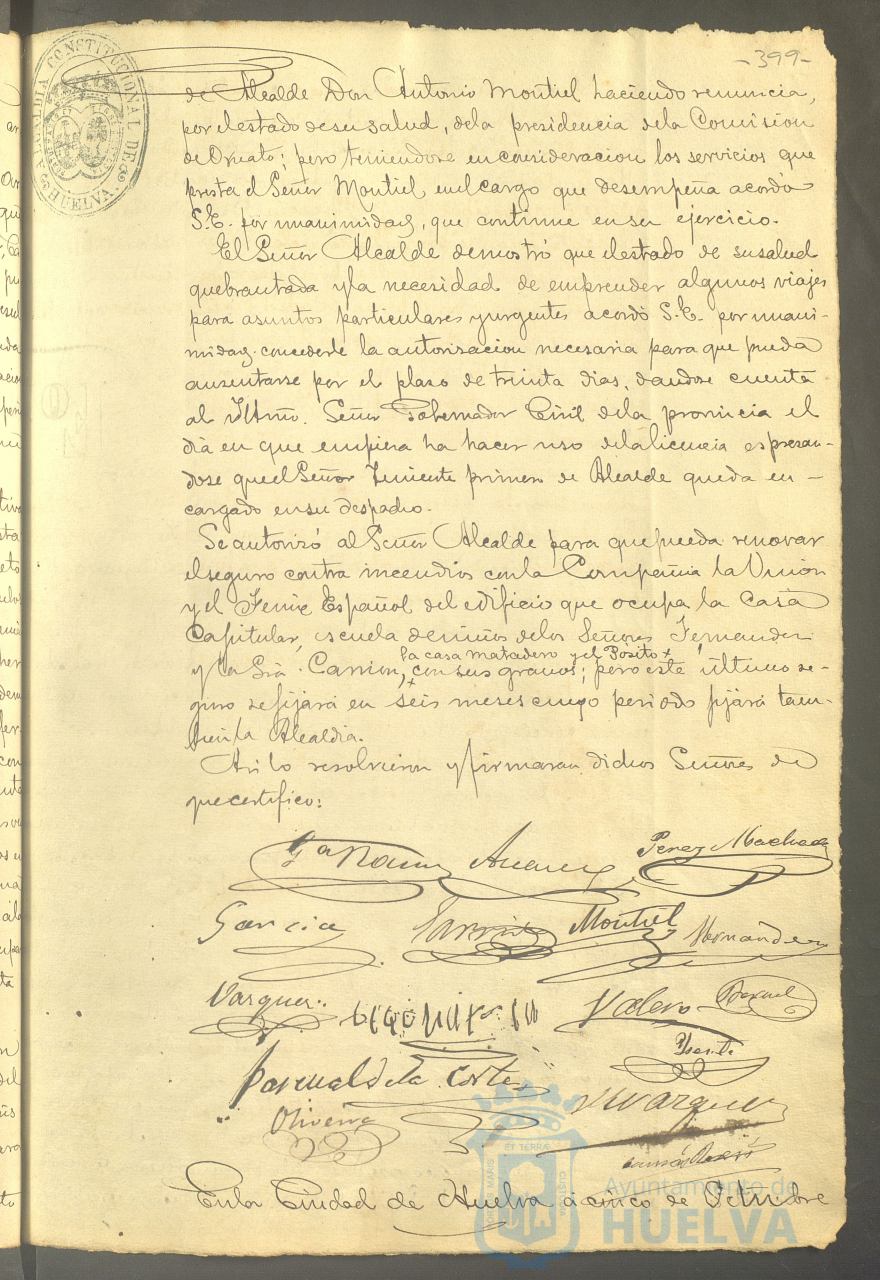 -399-
ALCALDIA CONSTITUCIONAL DE HUELVA.
de Alcalde Don Antonio Montiel haciendo renuncia,
por el estado de su salud, de la presidencia de la Comision
de Ornato; pero teniendose en consideracion los servicios que
presta el Señor Montiel en el cargo que desempeña acordó
S.E. por unanimidad, que continue en su ejercicio.
El Señor Alcalde demostró que el estado de su salud
quebrantada y la necesidad de emprender algunos viajes
para asuntos particulares y urgentes acordó S.E. por unani-
midad concederle la autorisacion necesaria para que pueda
ausentarse por el plaso de treinta dias, dandose cuenta
al Iltmo. Señor Gobernador Civil de la provincia el
dia en que empiera ha hacer uso de la licencia espresan-
dose que el Señor Teniente primero de Alcalde queda en-
cargado en su despacho.
Se autorizó al Señor Alcalde para que pueda renovar
el seguro contra incendios con la Compañia la Union
y el Fenix Español del edificio que ocupa la Casa
Capitular, escuela de niños de los Señores Fernandez
la casa matadero y el Posito x
y la Sra. Carrion, x con sus granos; pero este último se-
guro se fijará en seis meses cuyo periodo fijará tam-
bien la Alcaldia.
Asi lo resolvieron y firmaran dichos Señores de
que certifico:
Perez Machado
Garcia
Montiel
Hernandez
Vazquez
Valero
Pascual de la Corte
Oliveira
Vazquez
En la Ciudad de Huelva a cinco de Octubre
Ayuntamiento de
HUELVA